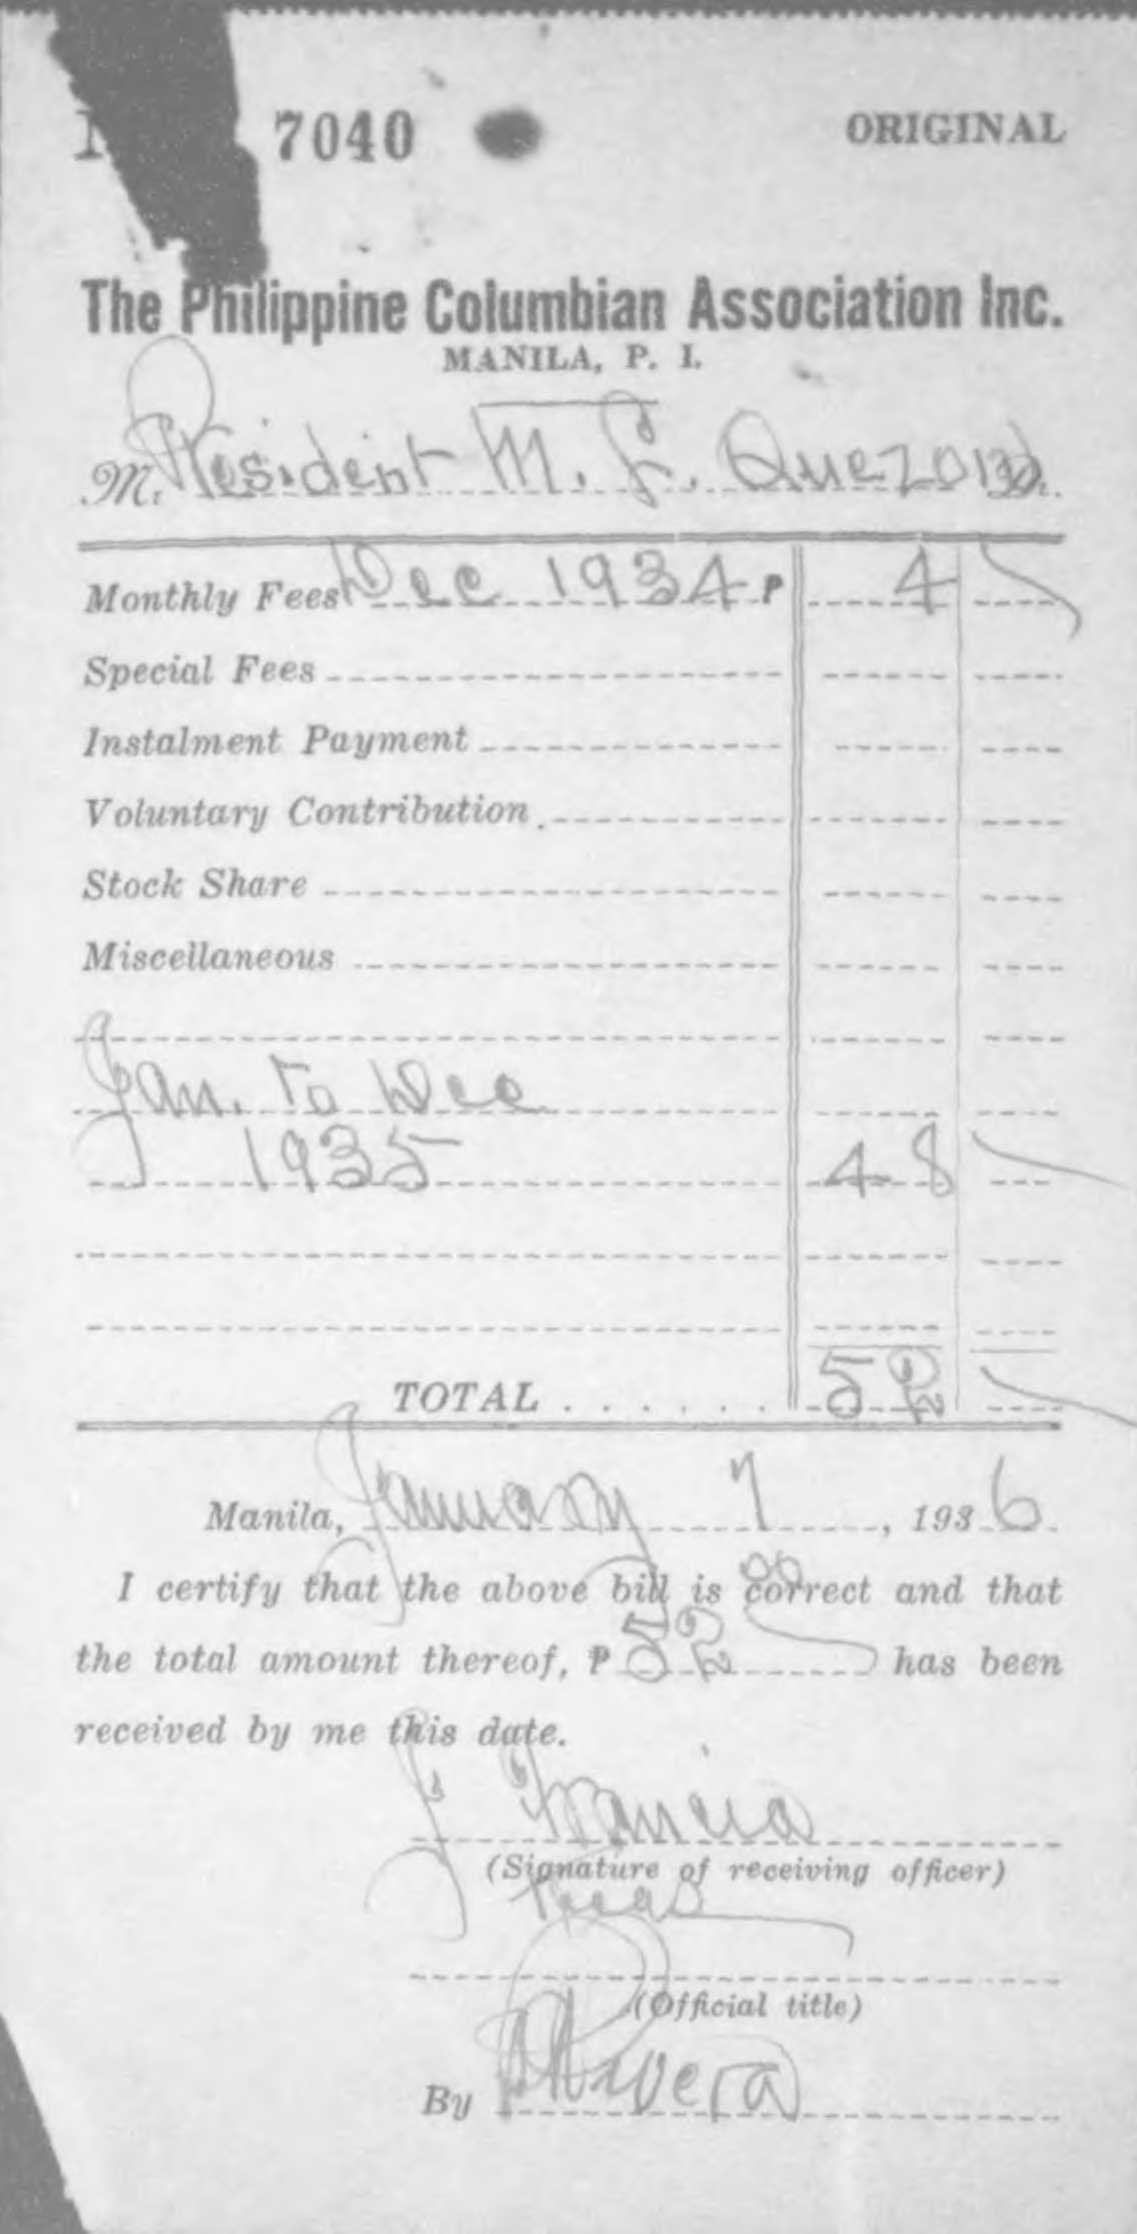 7040 ORIGINAL
The Philippine Columbian Association Inc.
MANILA, P. I.
M. President M. L. Quezon Dr.
Monthly Fees Dec 1934 ₱ 4
Special Fees
Instalment Payment
Voluntary Contribution
Stock Share
Miscellaneous
Jan. to Dec
1935 48
TOTAL . . . . . . . 52
Manila, January 7, 1936
I certify that the above bill is correct and that
the total amount thereof, ₱ 52 00 has been
received by me this date.
J. Francia
(Signature of receiving officer)
Treas
(Official title)
By Rivera